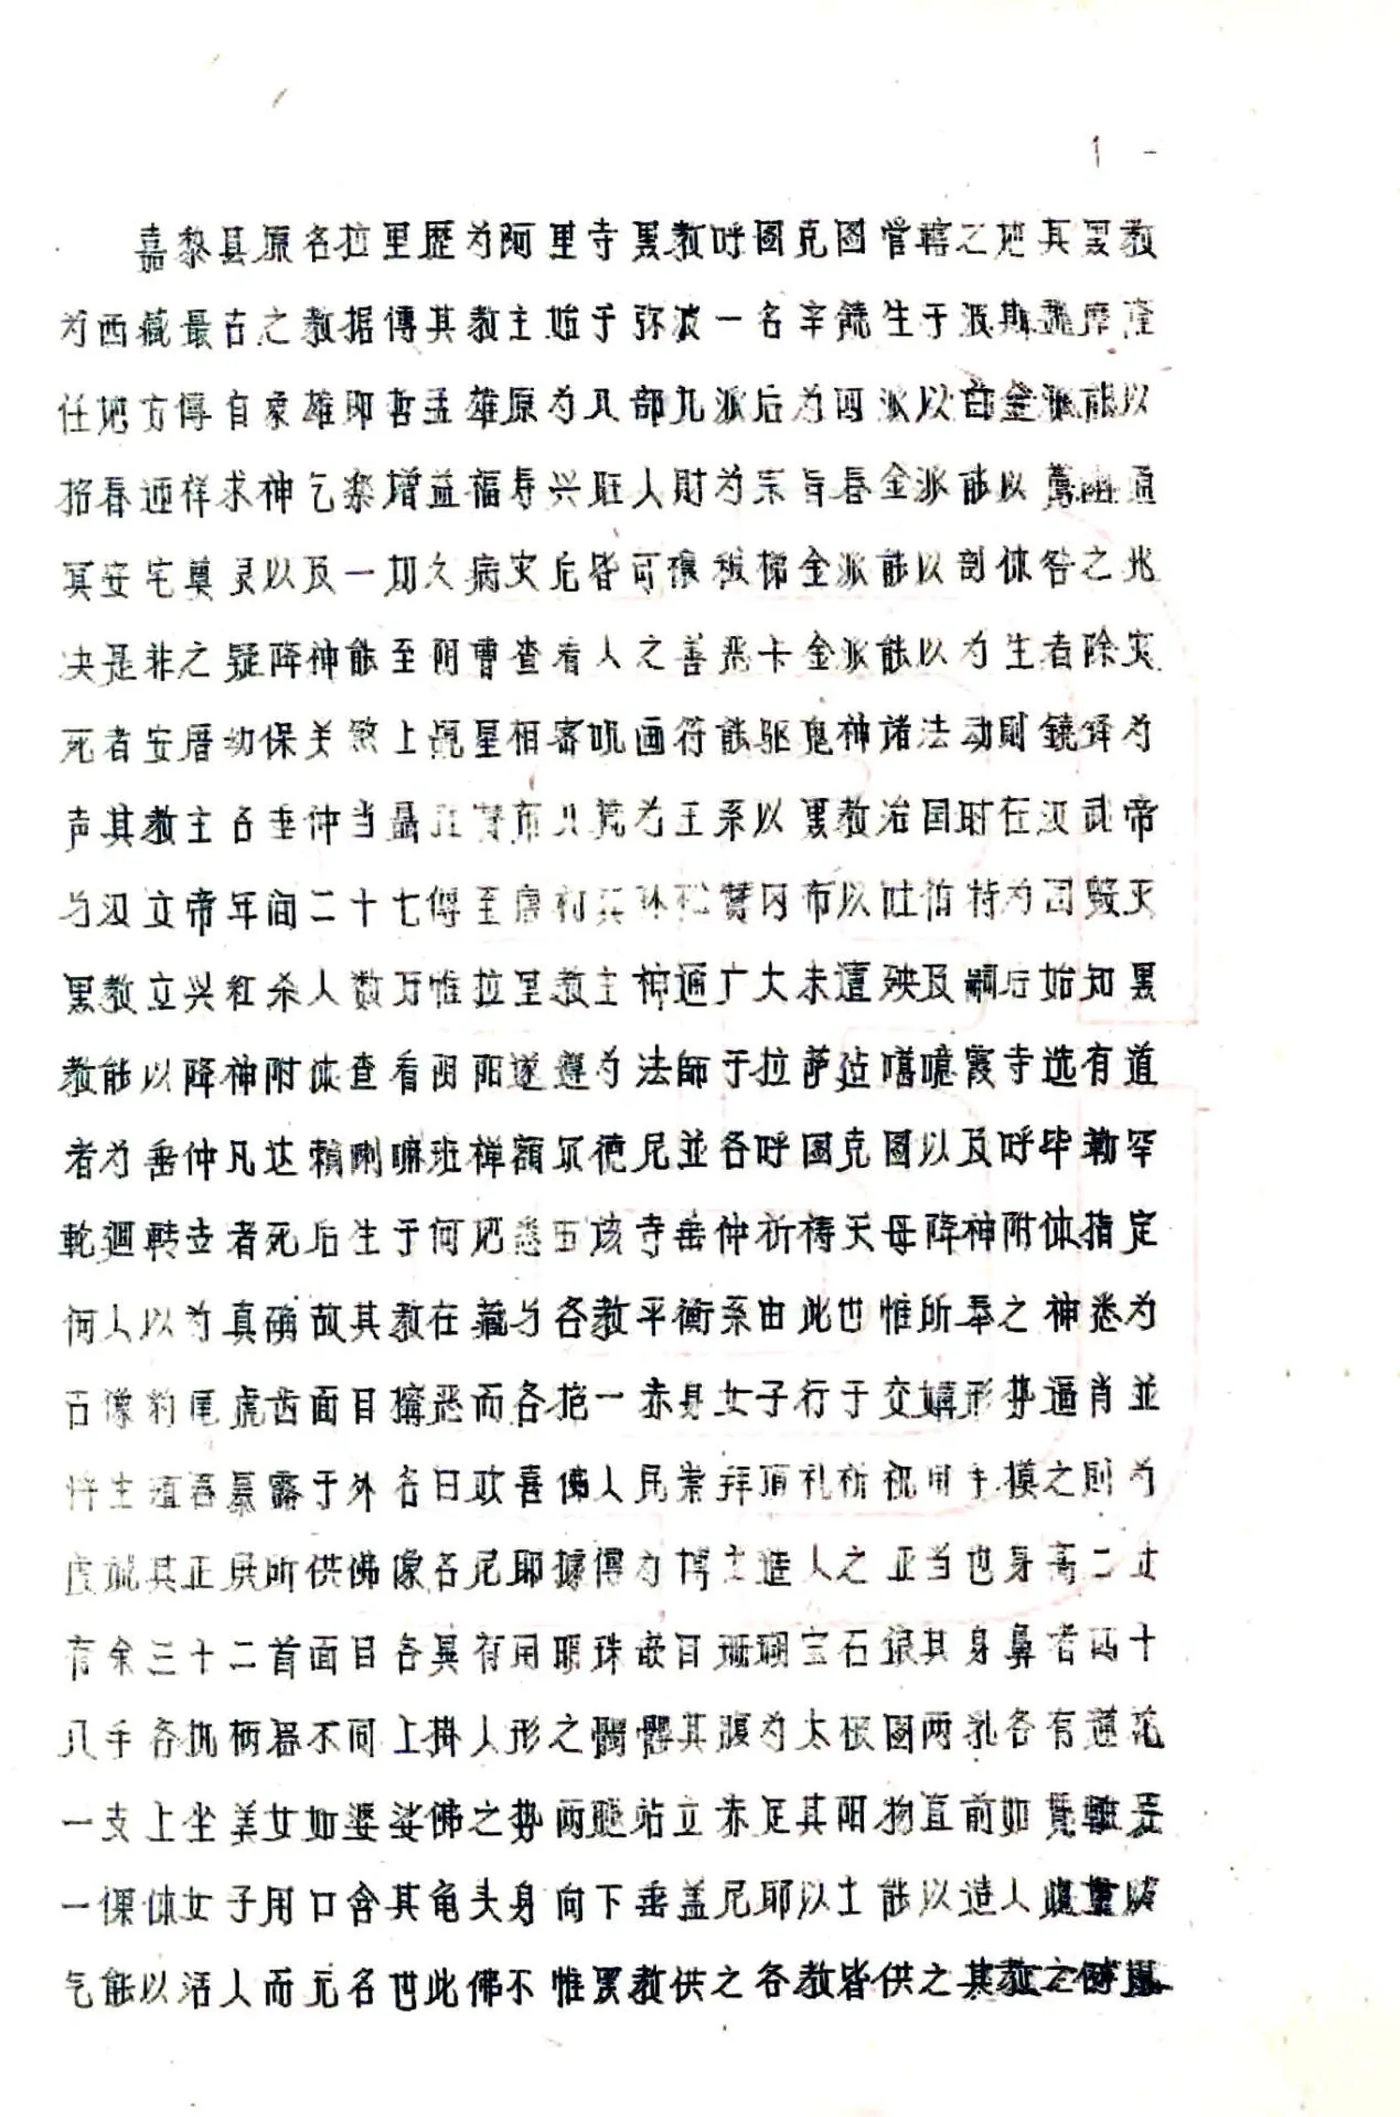 1 -
嘉黎县原名拉里歷为阿里寺黑教呼圖克圖管轄之地其黑教
为西藏最古之教据傳其教主始于弥波一名辛饒生于波斯魏摩隆
任地方傳自象雄即哲孟雄原为八部九派后为四派以首金派能以
招春迎祥求神乞桨增益福寿兴旺人財为宗旨春金派能以薦幽通
冥安宅奠灵以及一切久病灾厄皆可禳祓梯金派能以剖休咎之兆
决是非之疑降神能至阴曹查看人之善恶卡金派能以为生者除灾
死者安厝幼保关煞上觇星相審吼画符能驱鬼神諸法动則鐃钹为
声其教主名垂仲当聶为王系以黑教治国时在汉武帝
与汉文帝年间二十七傳至唐初松贊冈布以吐伯特为国毁灭
黑教立兴红杀人数万惟拉里教主神通广大未遭殃及嗣后始知黑
教能以降神附体查看阴阳遂遵为法師于拉萨建噶噫霞寺选有道
者为垂仲凡达賴喇嘛班禅額尔德尼並各呼圖克圖以及呼毕勒罕
輪廻轉去者死后生于何地悉由该寺垂仲祈祷天母降神附体指定
何人以为真确故其教在藏与各教平衡系由此也惟所奉之神悉为
古像豹尾虎齿面目獰恶而各抱一赤身女子行于交媾形势逼肖並
将生殖器暴露于外名曰欢喜佛人民崇拜頂礼祈祝用手摸之則为
虔誠其正殿所供佛像名尼耶據傳为搏土造人之亚当也身高二丈
有余三十二首面目各異有用明珠嵌目珊瑚宝石鑲其身鼻者四十
八手各执柄器不同上掛人形之髑髏其腹为太极圖两乳各有蓮花
一支上坐美女如婆娑佛之势两腿站立赤足其阳物直前如
一倮体女子用口含其龟头身向下垂盖尼耶以土能以造人
气能以活人而元名也此佛不惟黑教供之各教皆供之其教之